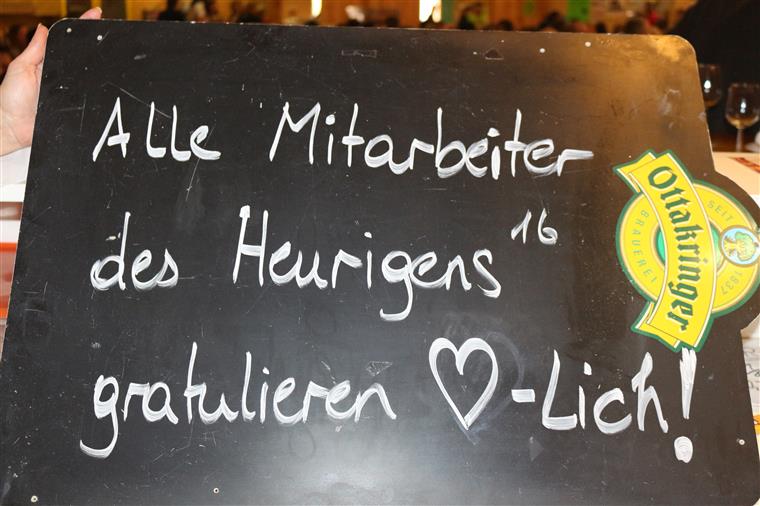 Alle Mitarbeiter
des Heurigens 16
gratulieren ♡-Lich!
Ottakringer
SEIT 1837
BRAUEREI